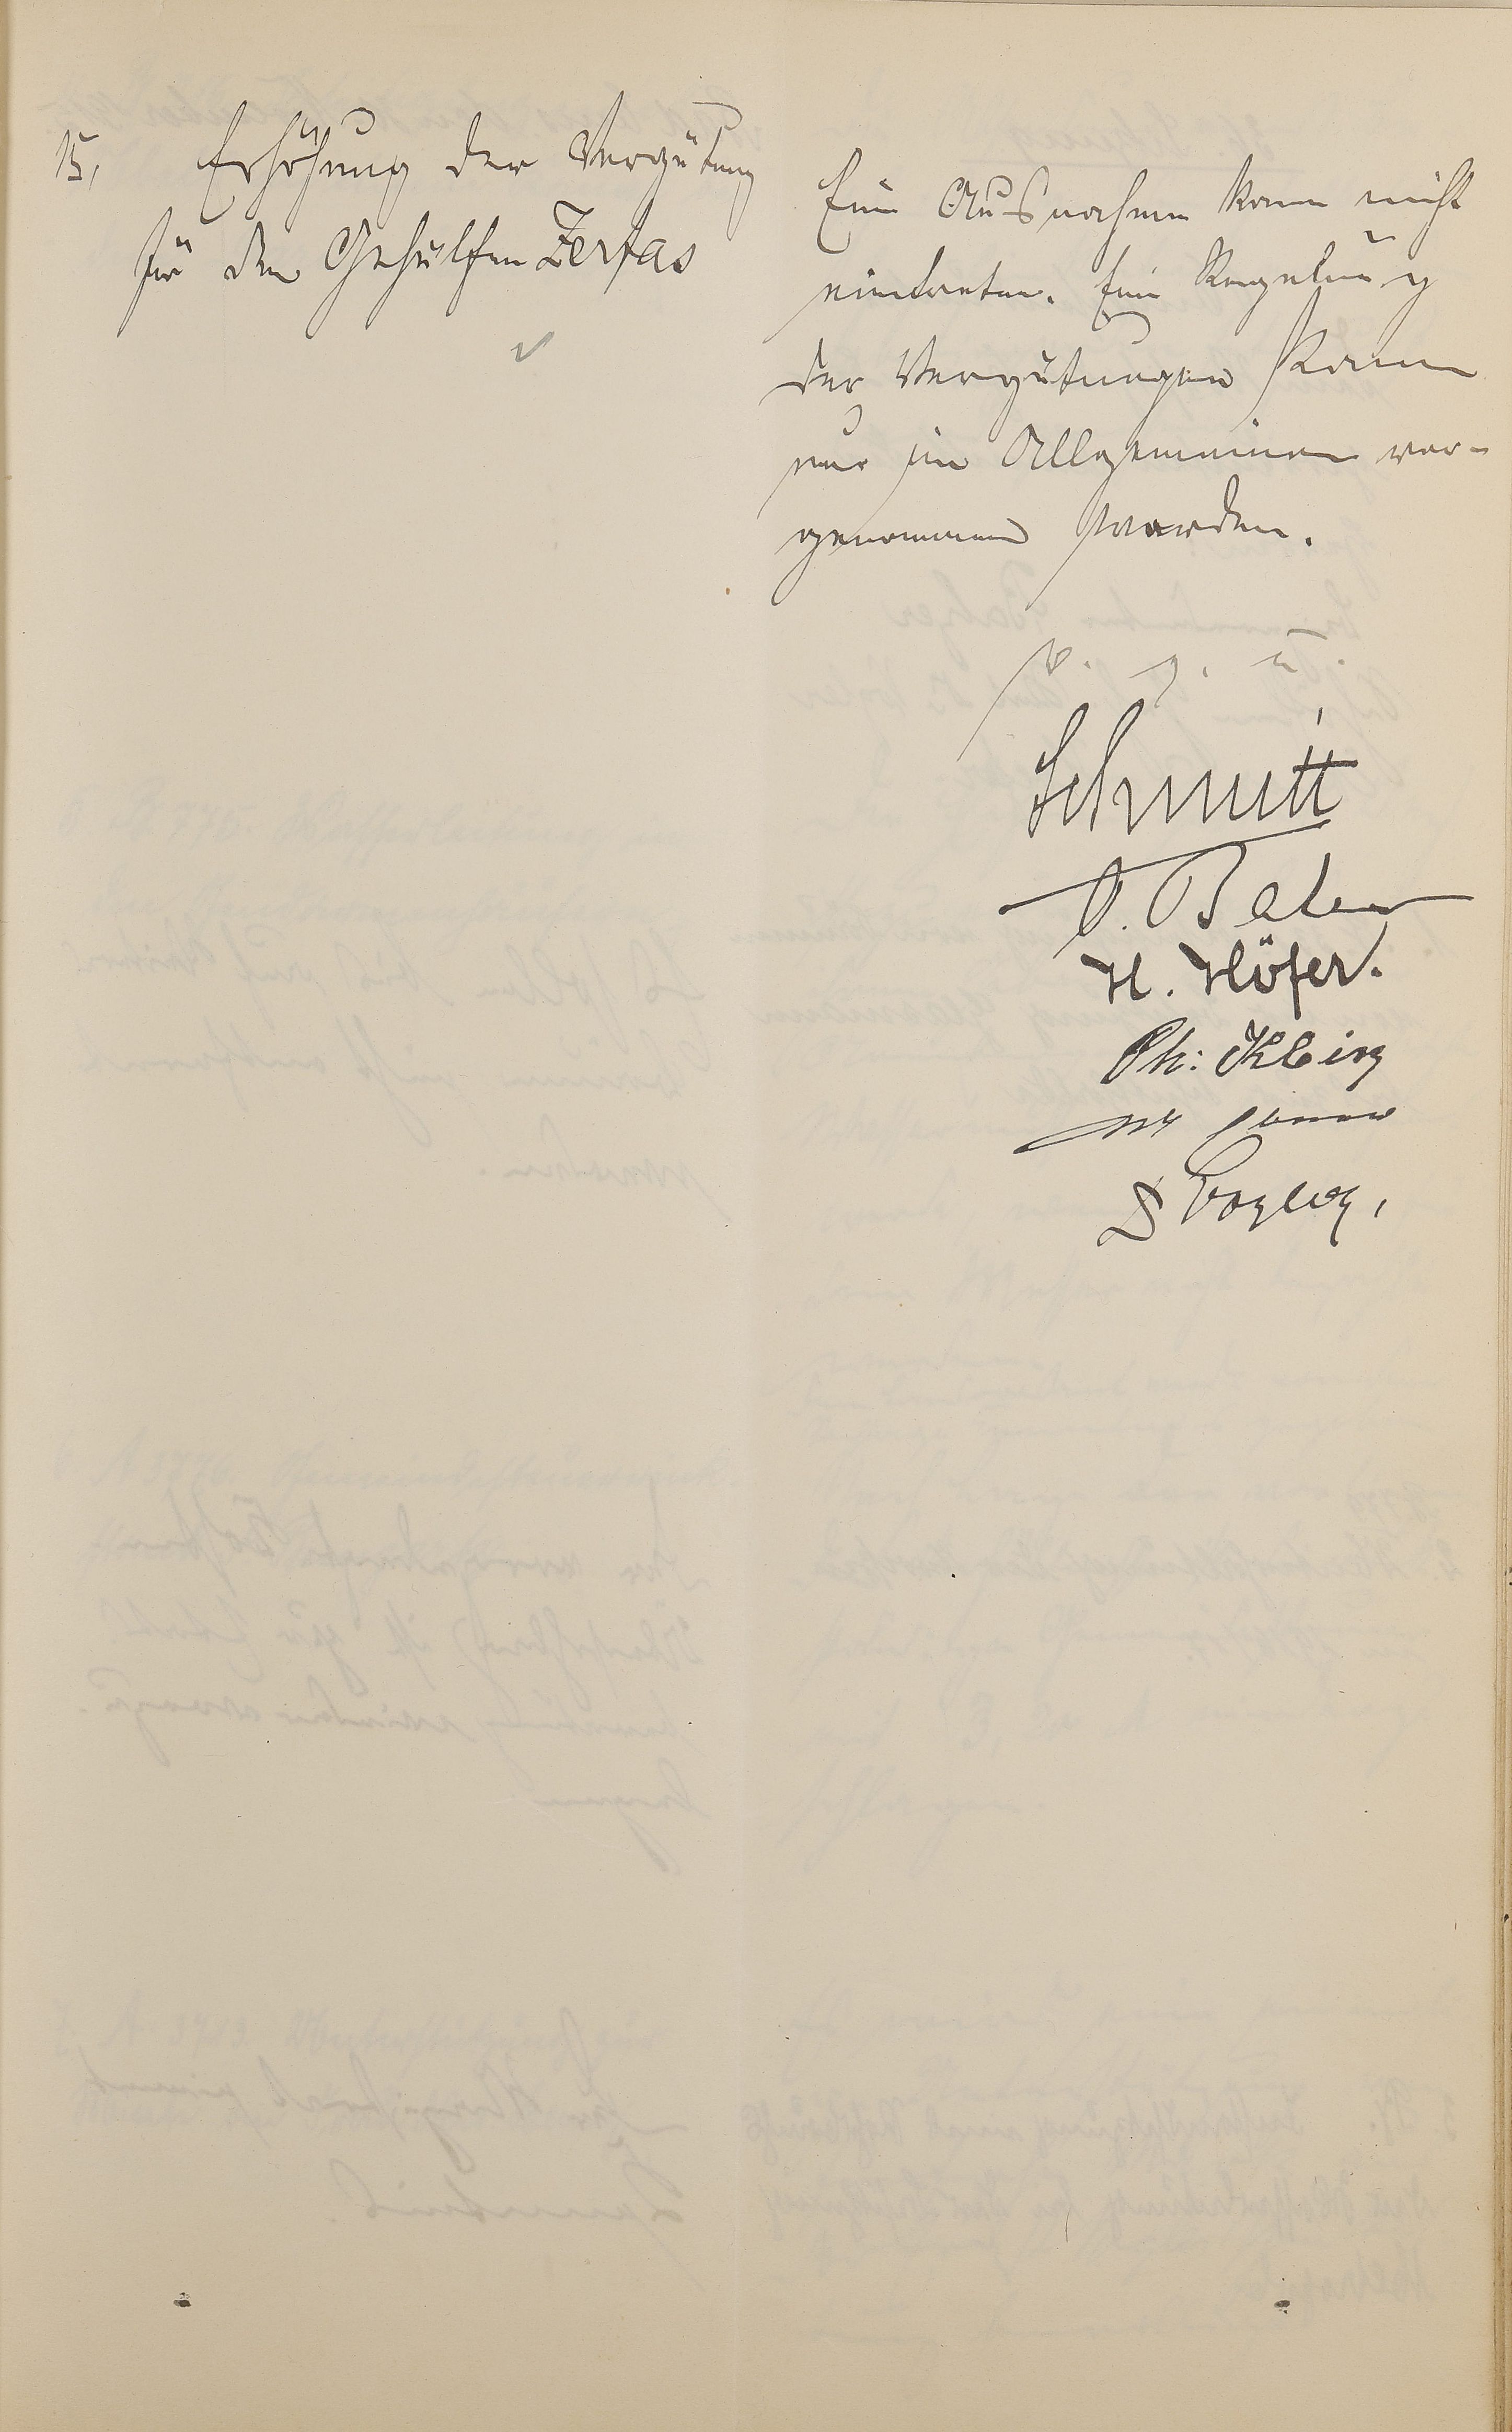 15, Erhöhung der Vergütung
für den Gehülfen Zerfas
Eine Ausnahme kann nicht
eintreten. Eine Regelung
der Vergütungen kann
nur im Allgemeinen vor-
genommen werden.
v. g. u.
Schmitt
H. Höfer.
Ph: Kling